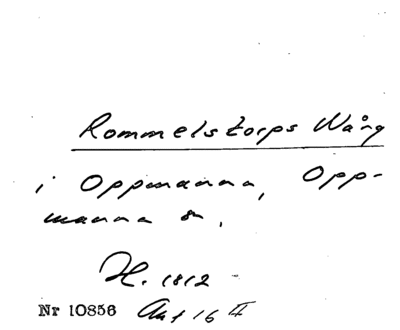 Rommelstorps Wång
i Oppmanna, Opp-
manna sn.
H. 1812
Nr 10856 Akt 16 II